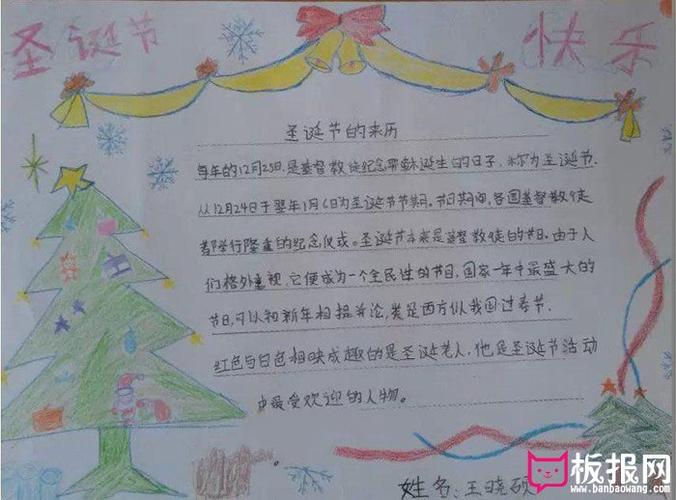 圣诞节
快乐
圣诞节的来历
每年的12月25日,是基督教徒纪念耶稣诞生的日子,称为圣诞节.
从12月24日于翌年1月6日为圣诞节节期。节日期间,各国基督教徒
都举行隆重的纪念仪式。圣诞节本来是基督教徒的节日,由于人
们格外重视,它便成为一个全民性的节日,国家一年中最盛大的
节日,可以和新年相提并论,类是西方似我国过春节.
红色与白色相映成趣的是圣诞老人,他是圣诞节活动
中最受欢迎的人物。
姓名:王晓硕
板报网
www.banbaowang.com